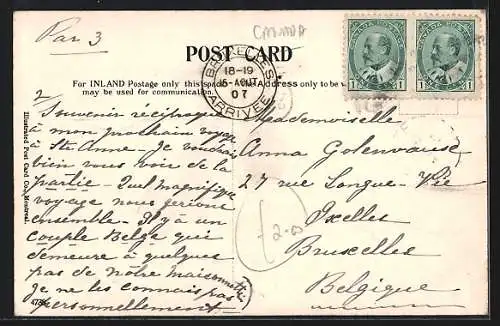 Par 3
CANADA
POST CARD
BRUXELLES
18-19
16-AOUT
07
ARRIVÉE
1 1
1 1
For INLAND Postage only this space Address only to be
may be used for communication.
Souvenir réciproque
à mon prochain voyage
à Ste Anne - Je voudrais
bien vous voir de la
partie - Quel magnifique
voyage nous ferions
ensemble - Il y a un
couple Belge qui
demeure à quelques
pas de notre maisonnette
je ne les connais pas
personnellement
Mademoiselle
Anna Golenvause
27 rue Longue-Vie
Ixelles
Bruxelles
Belgique
Illustrated Post Card Co., Montreal.